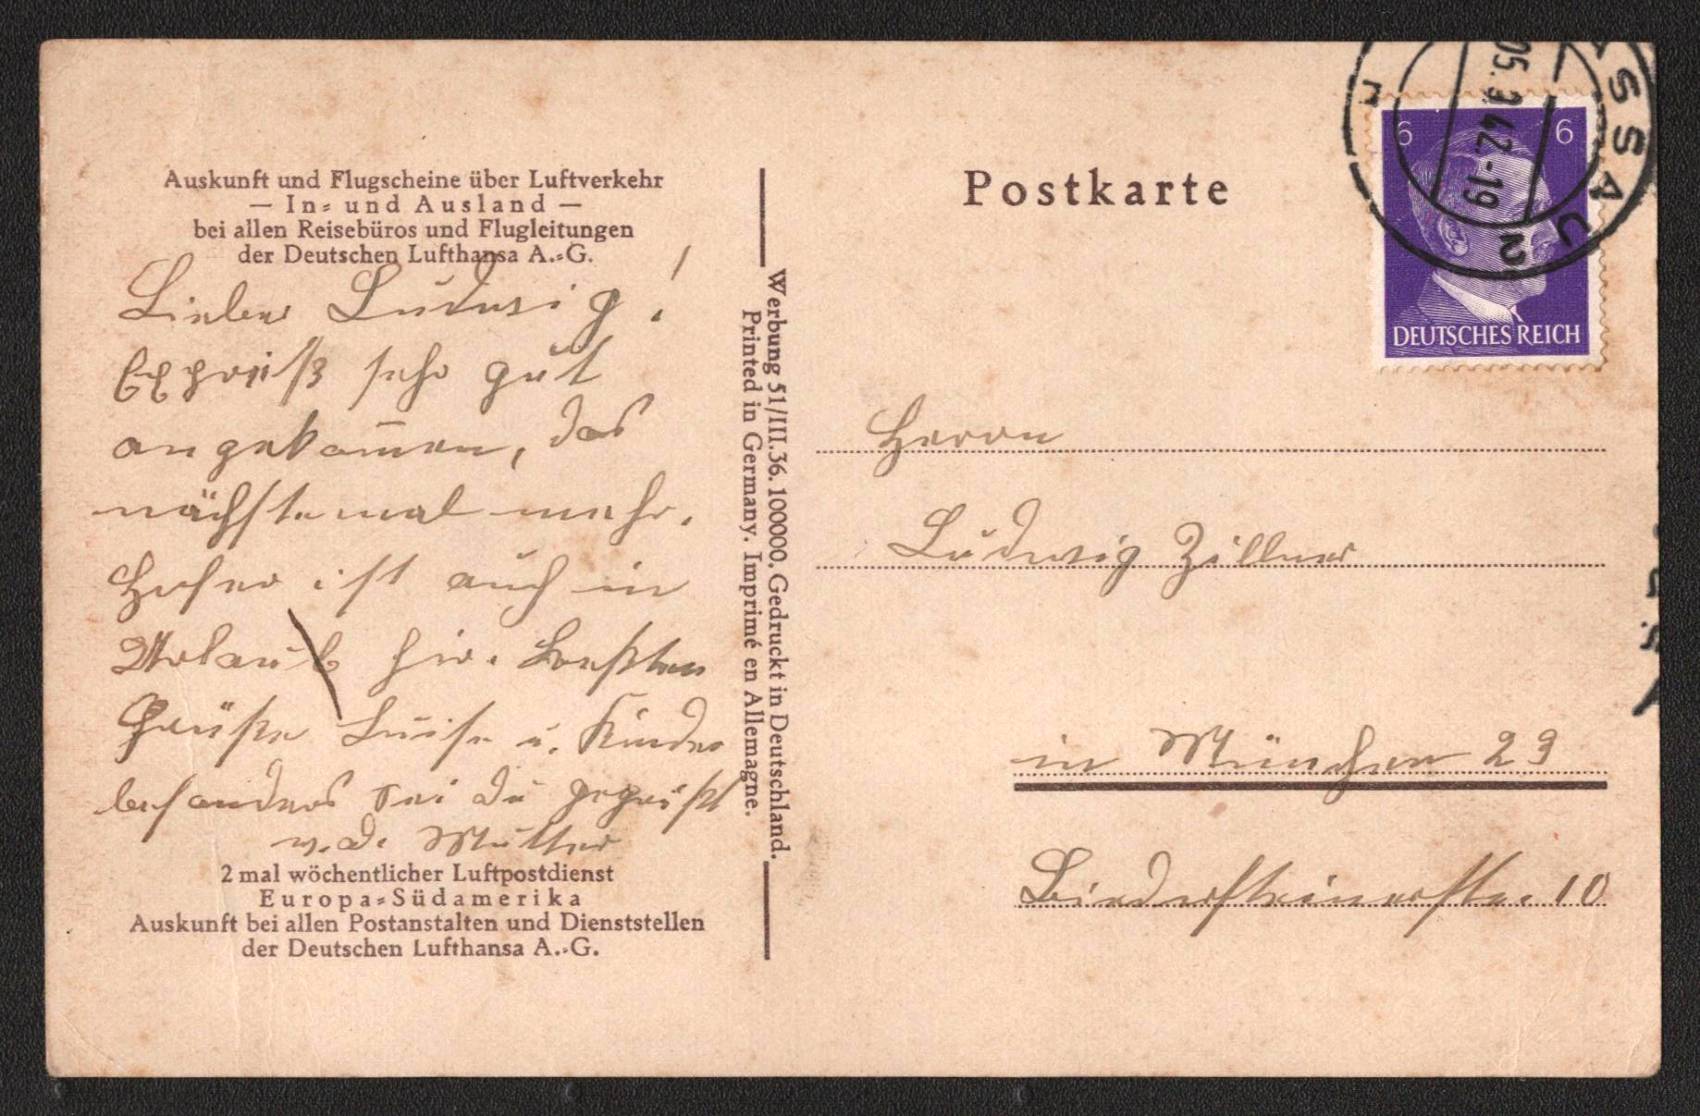 Auskunft und Flugscheine über Luftverkehr
— In- und Ausland —
bei allen Reisebüros und Flugleitungen
der Deutschen Lufthansa A.-G.
Lieber Ludwig!
sehr gut
angekom̅en, das
nächstemal mehr.
ist auch in
Urlaub hier. Besten
Grüße Luise u. Kinder
besonders sei du gegrüßt
v. d. Mutter
2 mal wöchentlicher Luftpostdienst
Europa-Südamerika
Auskunft bei allen Postanstalten und Dienststellen
der Deutschen Lufthansa A.-G.
Werbung 51/III.36. 100000. Gedruckt in Deutschland.
Printed in Germany. Imprimé en Allemagne.
Postkarte
6 6
DEUTSCHES REICH
SSAU
05.3.42.-19
2
Herrn
Ludwig Zillner
in München 23
Biedersteinerstr. 10